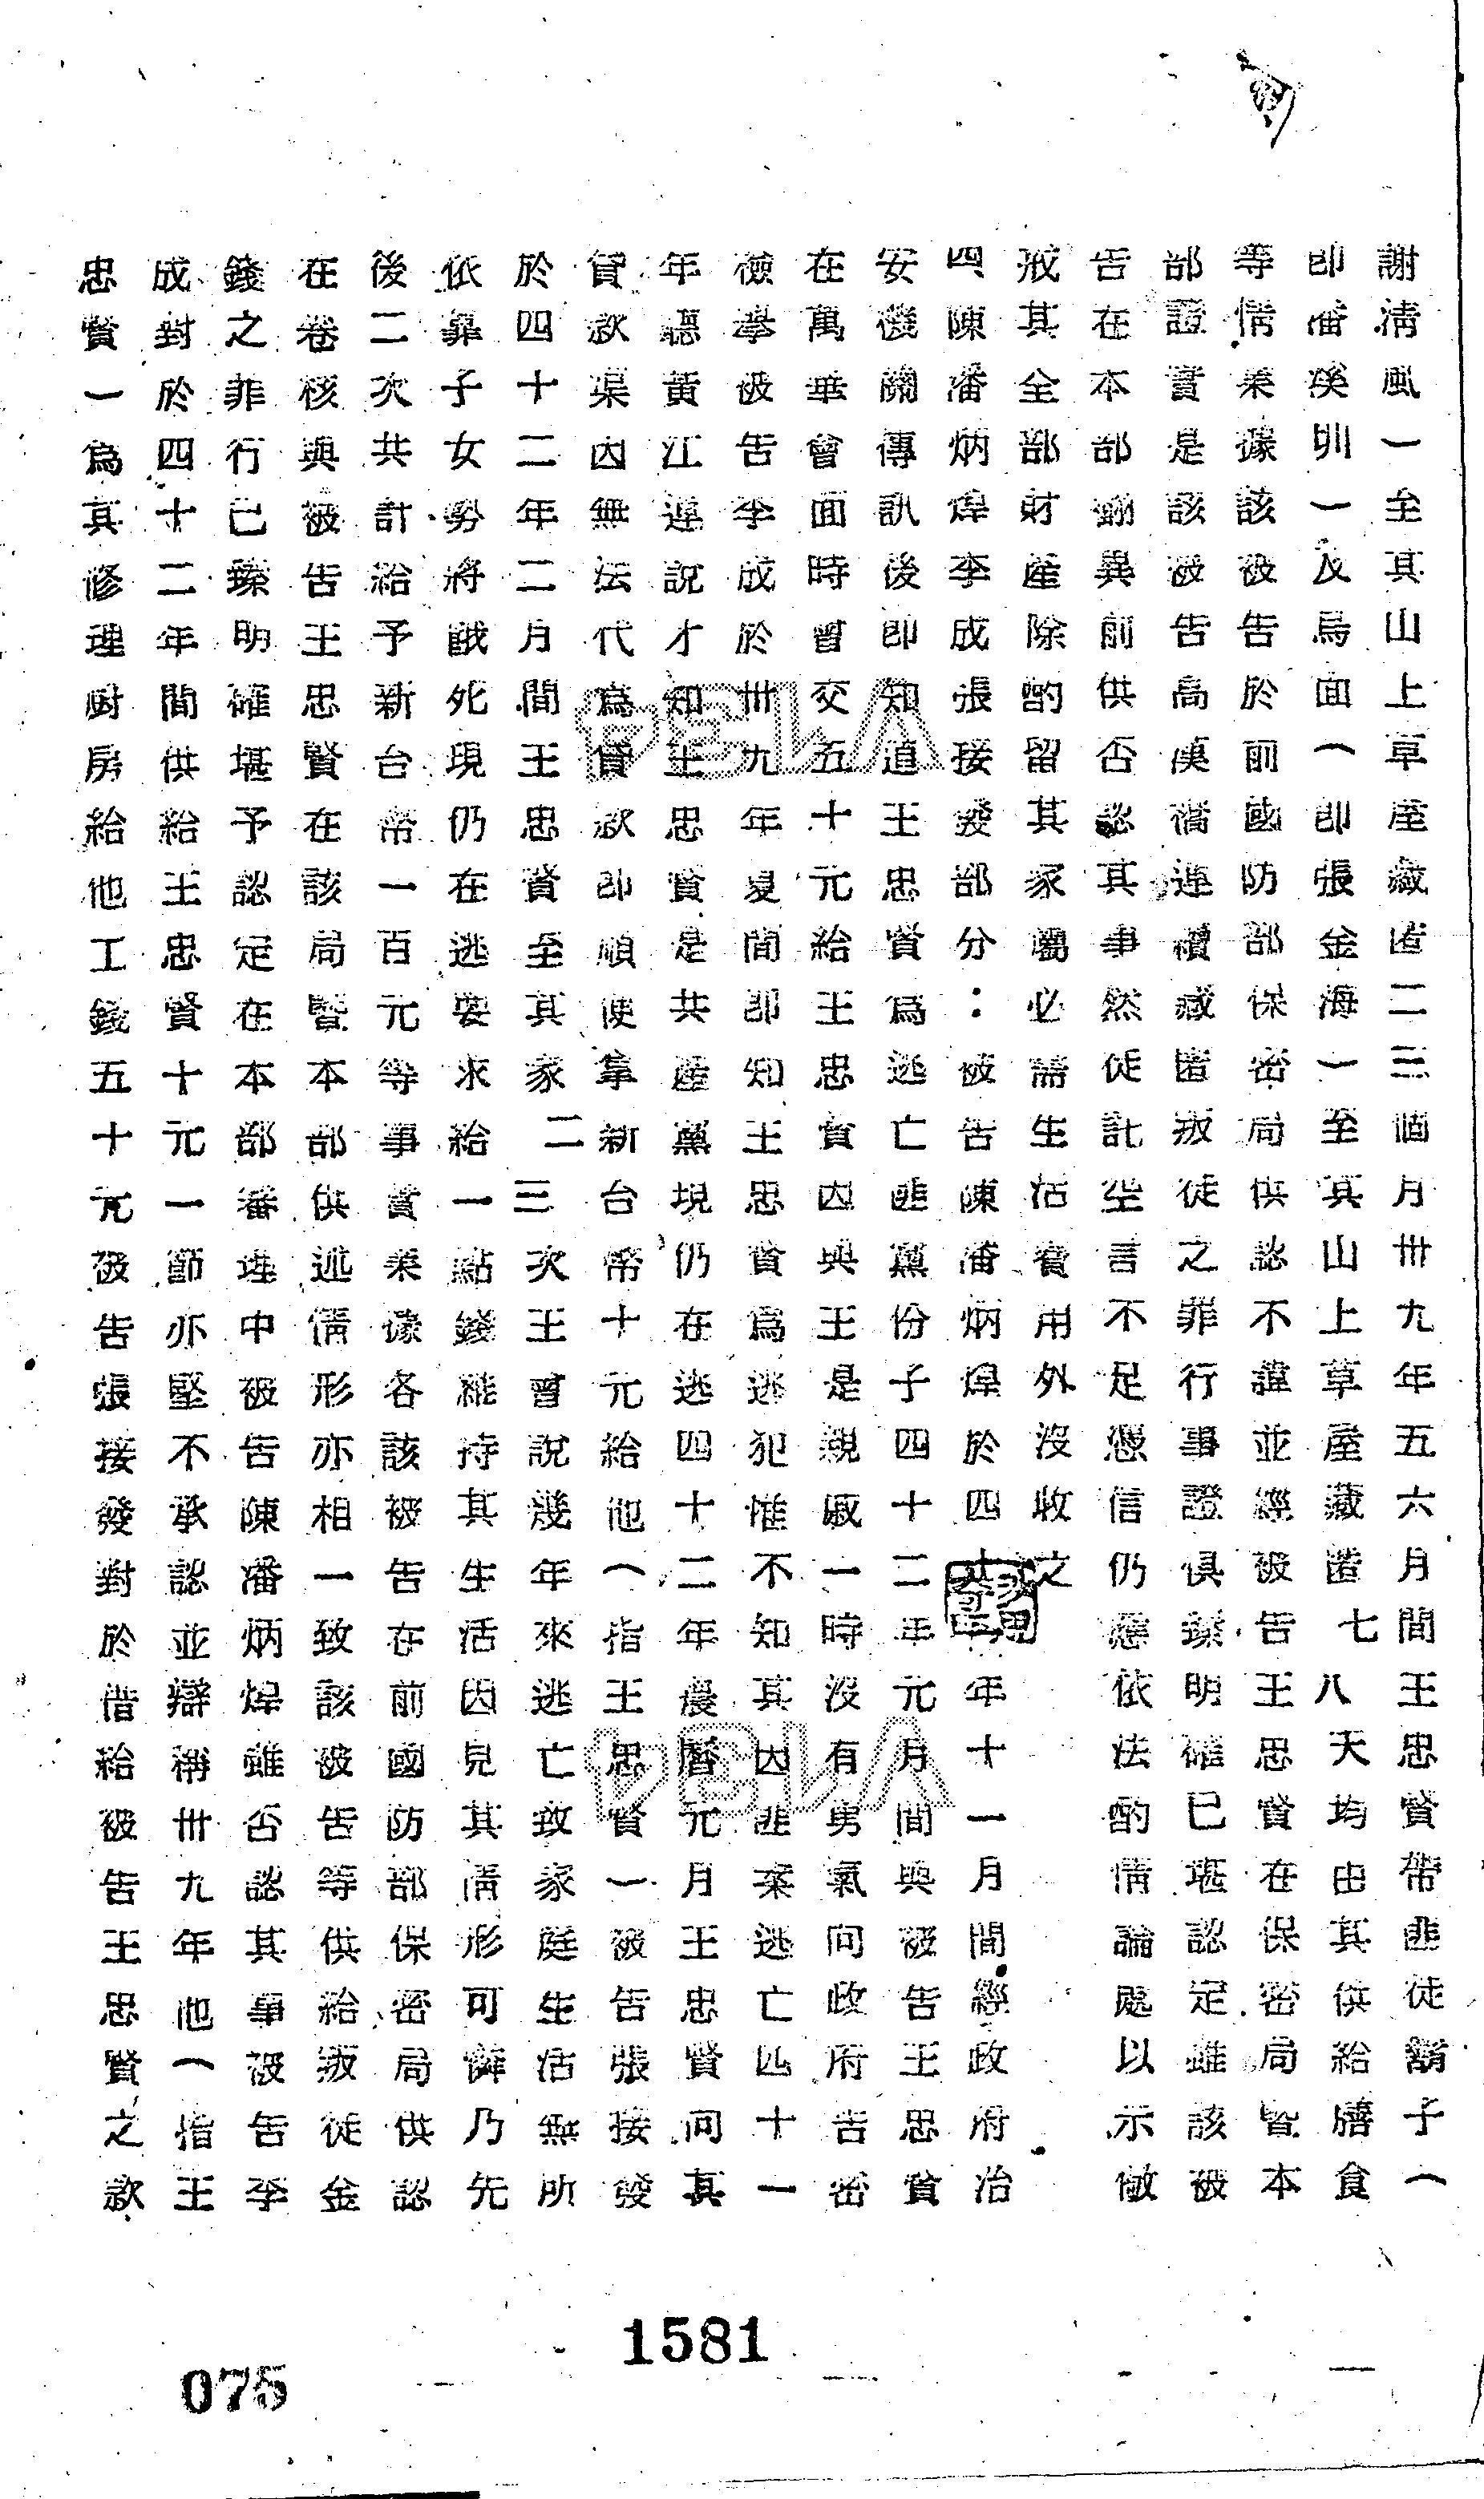 謝清風一至其山上草屋藏匿二三個月卅九年五六月間王忠賢帶匪徒鬍子（
即潘溪圳一及烏面（即張金海一至其山上草屋藏匿七八天均由其供給膳食
等情案據該被告於前國防部保密局供認不諱並經被告王忠賢在保密局暨本
部證實是該被告高漢橋連續藏匿叛徒之罪行事證俱臻明確已堪認定雖該被
告在本部翻異前供否認其事然徒託空言不足憑信仍應依法酌情論處以示儆
戒其全部財產除酌留其家屬必需生活費用外沒收之
四、陳潘炳焊李成張接發部分：被告陳潘炳焊於四十年十一月間經政府治
安機關傳訊後即知道王忠賢為逃亡匪黨份子四十二年元月間與被告王忠賢
在萬華會面時曾交五十元給王忠賢因與王是親戚一時沒有勇氣向政府告密
檢舉被告李成於卅九年夏間即知王忠賢為逃犯惟不知其因匪案逃亡四十一
年聽黃江邊說才知王忠賢是共產黨現仍在逃四十二年農曆元月王忠賢向其
貸款渠因無法代為貸款即順便拿新台幣十元給他（指王忠賢一被告張接發
於四十二年二月間王忠賢至其家二三次王曾說幾年來逃亡致家庭生活無所
依靠子女勢將餓死現仍在逃要求給一點錢維持其生活因見其情形可憐乃先
後二次共計給予新台幣一百元等事實業據各該被告在前國防部保密局供認
在卷核與被告王忠賢在該局暨本部供述情形亦相一致該被告等供給叛徒金
錢之罪行已臻明確堪予認定在本部審理中被告陳潘炳焊雖否認其事被告李
成對於四十二年間供給王忠賢十元一節亦堅不承認並辯稱卅九年他（指王
忠賢一為其修理廚房給他工錢五十元被告張接發對於借給被告王忠賢之款
1581
075